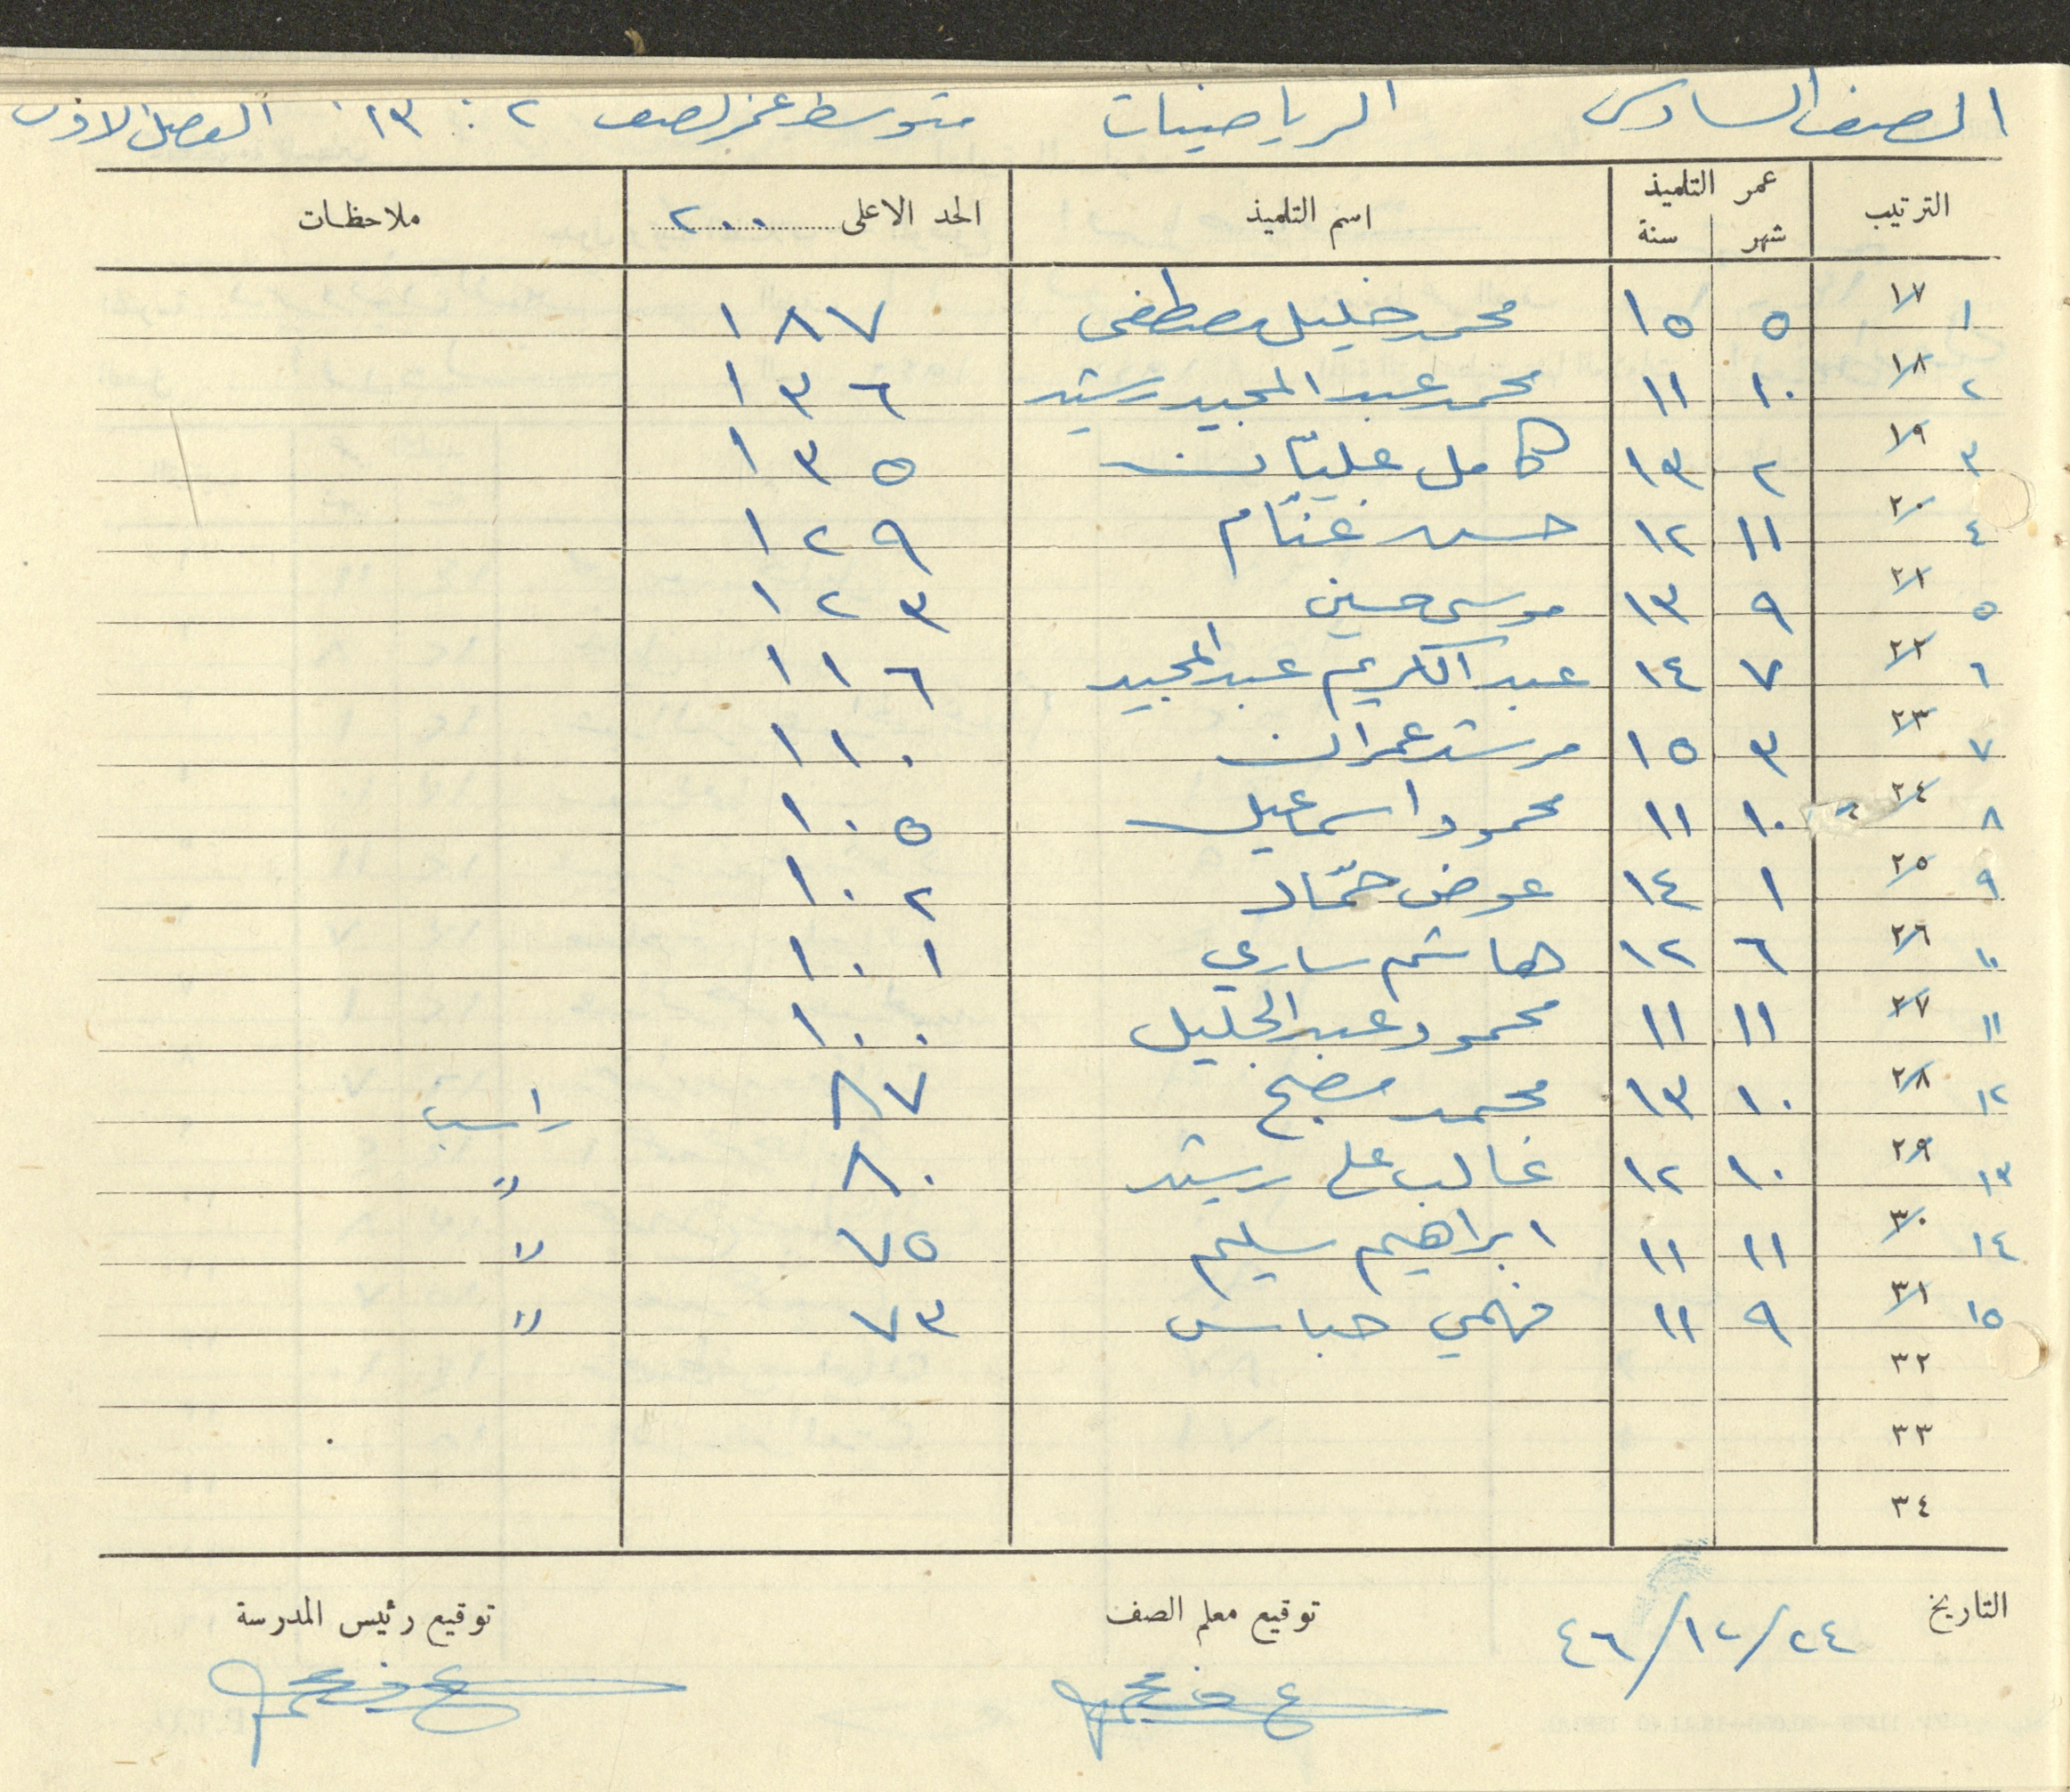 الصف السادس الرياضيات متوسط عمر الصف ٢ : ١٣ الفصل الاول
الترتيب عمر التلميذ شهر سنة اسم التلميذ الحد الاعلى ٢٠٠ ملاحظات
١ ١٧ ٥ ١٥ محمد خليل مصطفى ١٨٧
٢ ١٨ ١٠ ١١ محمد عبد المجيد رشيد ١٣٦
٣ ١٩ ٢ ١٣ كامل عليّان ١٣٥
٤ ٢٠ ١١ ١٢ حسن غنّام ١٢٩
٥ ٢١ ٩ ١٣ موسى حسين ١٢٣
٦ ٢٢ ٧ ١٤ عبد الكريم عبد المجيد ١١٦
٧ ٢٣ ٣ ١٥ مرشد عمران ١١٠
٨ ٢٤ ١٠ ١١ محمود اسماعيل ١٠٥
٩ ٢٥ ١ ١٤ عوض حمّاد ١٠٢
١٠ ٢٦ ٦ ١٢ هاشم ساري ١٠١
١١ ٢٧ ١١ ١١ محمود عبد الجليل ١٠٠
١٢ ٢٨ ١٠ ١٣ محمد مصبح ٨٧ راسب
١٣ ٢٩ ١٠ ١٢ غالب علي رشيد ٨٠ "
١٤ ٣٠ ١١ ١١ ابراهيم سليم ٧٥ "
١٥ ٣١ ٩ ١١ فهمي حباس ٧٣ "
٣٢
٣٣
٣٤
التاريخ ٢٤/١٢/٤٦ توقيع معلم الصف توقيع رئيس المدرسة